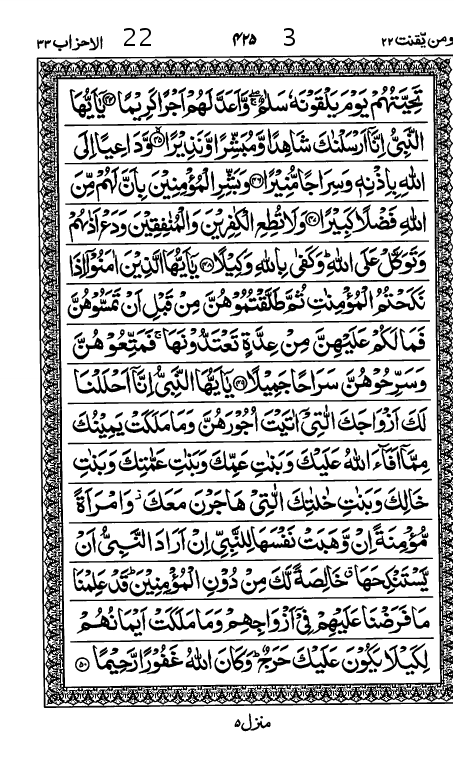 ومن یقنت ۲۲ 3 ۴۲۵ 22 الاحزاب ۳۳
تَحِيَّتُهُمْ يَوْمَ يَلْقَوْنَهٗ سَلٰمٌ ۚۖ وَّاَعَدَّ لَهُمْ اَجْرًا كَرِيْمًا ۴۴ يٰۤاَيُّهَا
النَّبِيُّ اِنَّاۤ اَرْسَلْنٰكَ شَاهِدًا وَّمُبَشِّرًا وَّنَذِيْرًا ۴۵ وَّدَاعِيًا اِلَى
اللّٰهِ بِاِذْنِهٖ وَسِرَاجًا مُّنِيْرًا ۴۶ وَبَشِّرِ الْمُؤْمِنِيْنَ بِاَنَّ لَهُمْ مِّنَ
اللّٰهِ فَضْلًا كَبِيْرًا ۴۷ وَلَا تُطِعِ الْكٰفِرِيْنَ وَالْمُنٰفِقِيْنَ وَدَعْ اَذٰىهُمْ
وَتَوَكَّلْ عَلَى اللّٰهِ ؕ وَكَفٰى بِاللّٰهِ وَكِيْلًا ۴۸ يٰۤاَيُّهَا الَّذِيْنَ اٰمَنُوْۤا اِذَا
نَكَحْتُمُ الْمُؤْمِنٰتِ ثُمَّ طَلَّقْتُمُوْهُنَّ مِنْ قَبْلِ اَنْ تَمَسُّوْهُنَّ
فَمَا لَكُمْ عَلَيْهِنَّ مِنْ عِدَّةٍ تَعْتَدُّوْنَهَا ۚ فَمَتِّعُوْهُنَّ
وَسَرِّحُوْهُنَّ سَرَاحًا جَمِيْلًا ۴۹ يٰۤاَيُّهَا النَّبِيُّ اِنَّاۤ اَحْلَلْنَا
لَكَ اَزْوَاجَكَ الّٰتِيْۤ اٰتَيْتَ اُجُوْرَهُنَّ وَمَا مَلَكَتْ يَمِيْنُكَ
مِمَّاۤ اَفَآءَ اللّٰهُ عَلَيْكَ وَبَنٰتِ عَمِّكَ وَبَنٰتِ عَمّٰتِكَ وَبَنٰتِ
خَالِكَ وَبَنٰتِ خٰلٰتِكَ الّٰتِيْ هَاجَرْنَ مَعَكَ ؗ وَامْرَاَةً
مُّؤْمِنَةً اِنْ وَّهَبَتْ نَفْسَهَا لِلنَّبِيِّ اِنْ اَرَادَ النَّبِيُّ اَنْ
يَّسْتَنْكِحَهَا ۗ خَالِصَةً لَّكَ مِنْ دُوْنِ الْمُؤْمِنِيْنَ ؕ قَدْ عَلِمْنَا
مَا فَرَضْنَا عَلَيْهِمْ فِيْۤ اَزْوَاجِهِمْ وَمَا مَلَكَتْ اَيْمَانُهُمْ
لِكَيْلَا يَكُوْنَ عَلَيْكَ حَرَجٌ ؕ وَكَانَ اللّٰهُ غَفُوْرًا رَّحِيْمًا ۵۰
منزل ۵